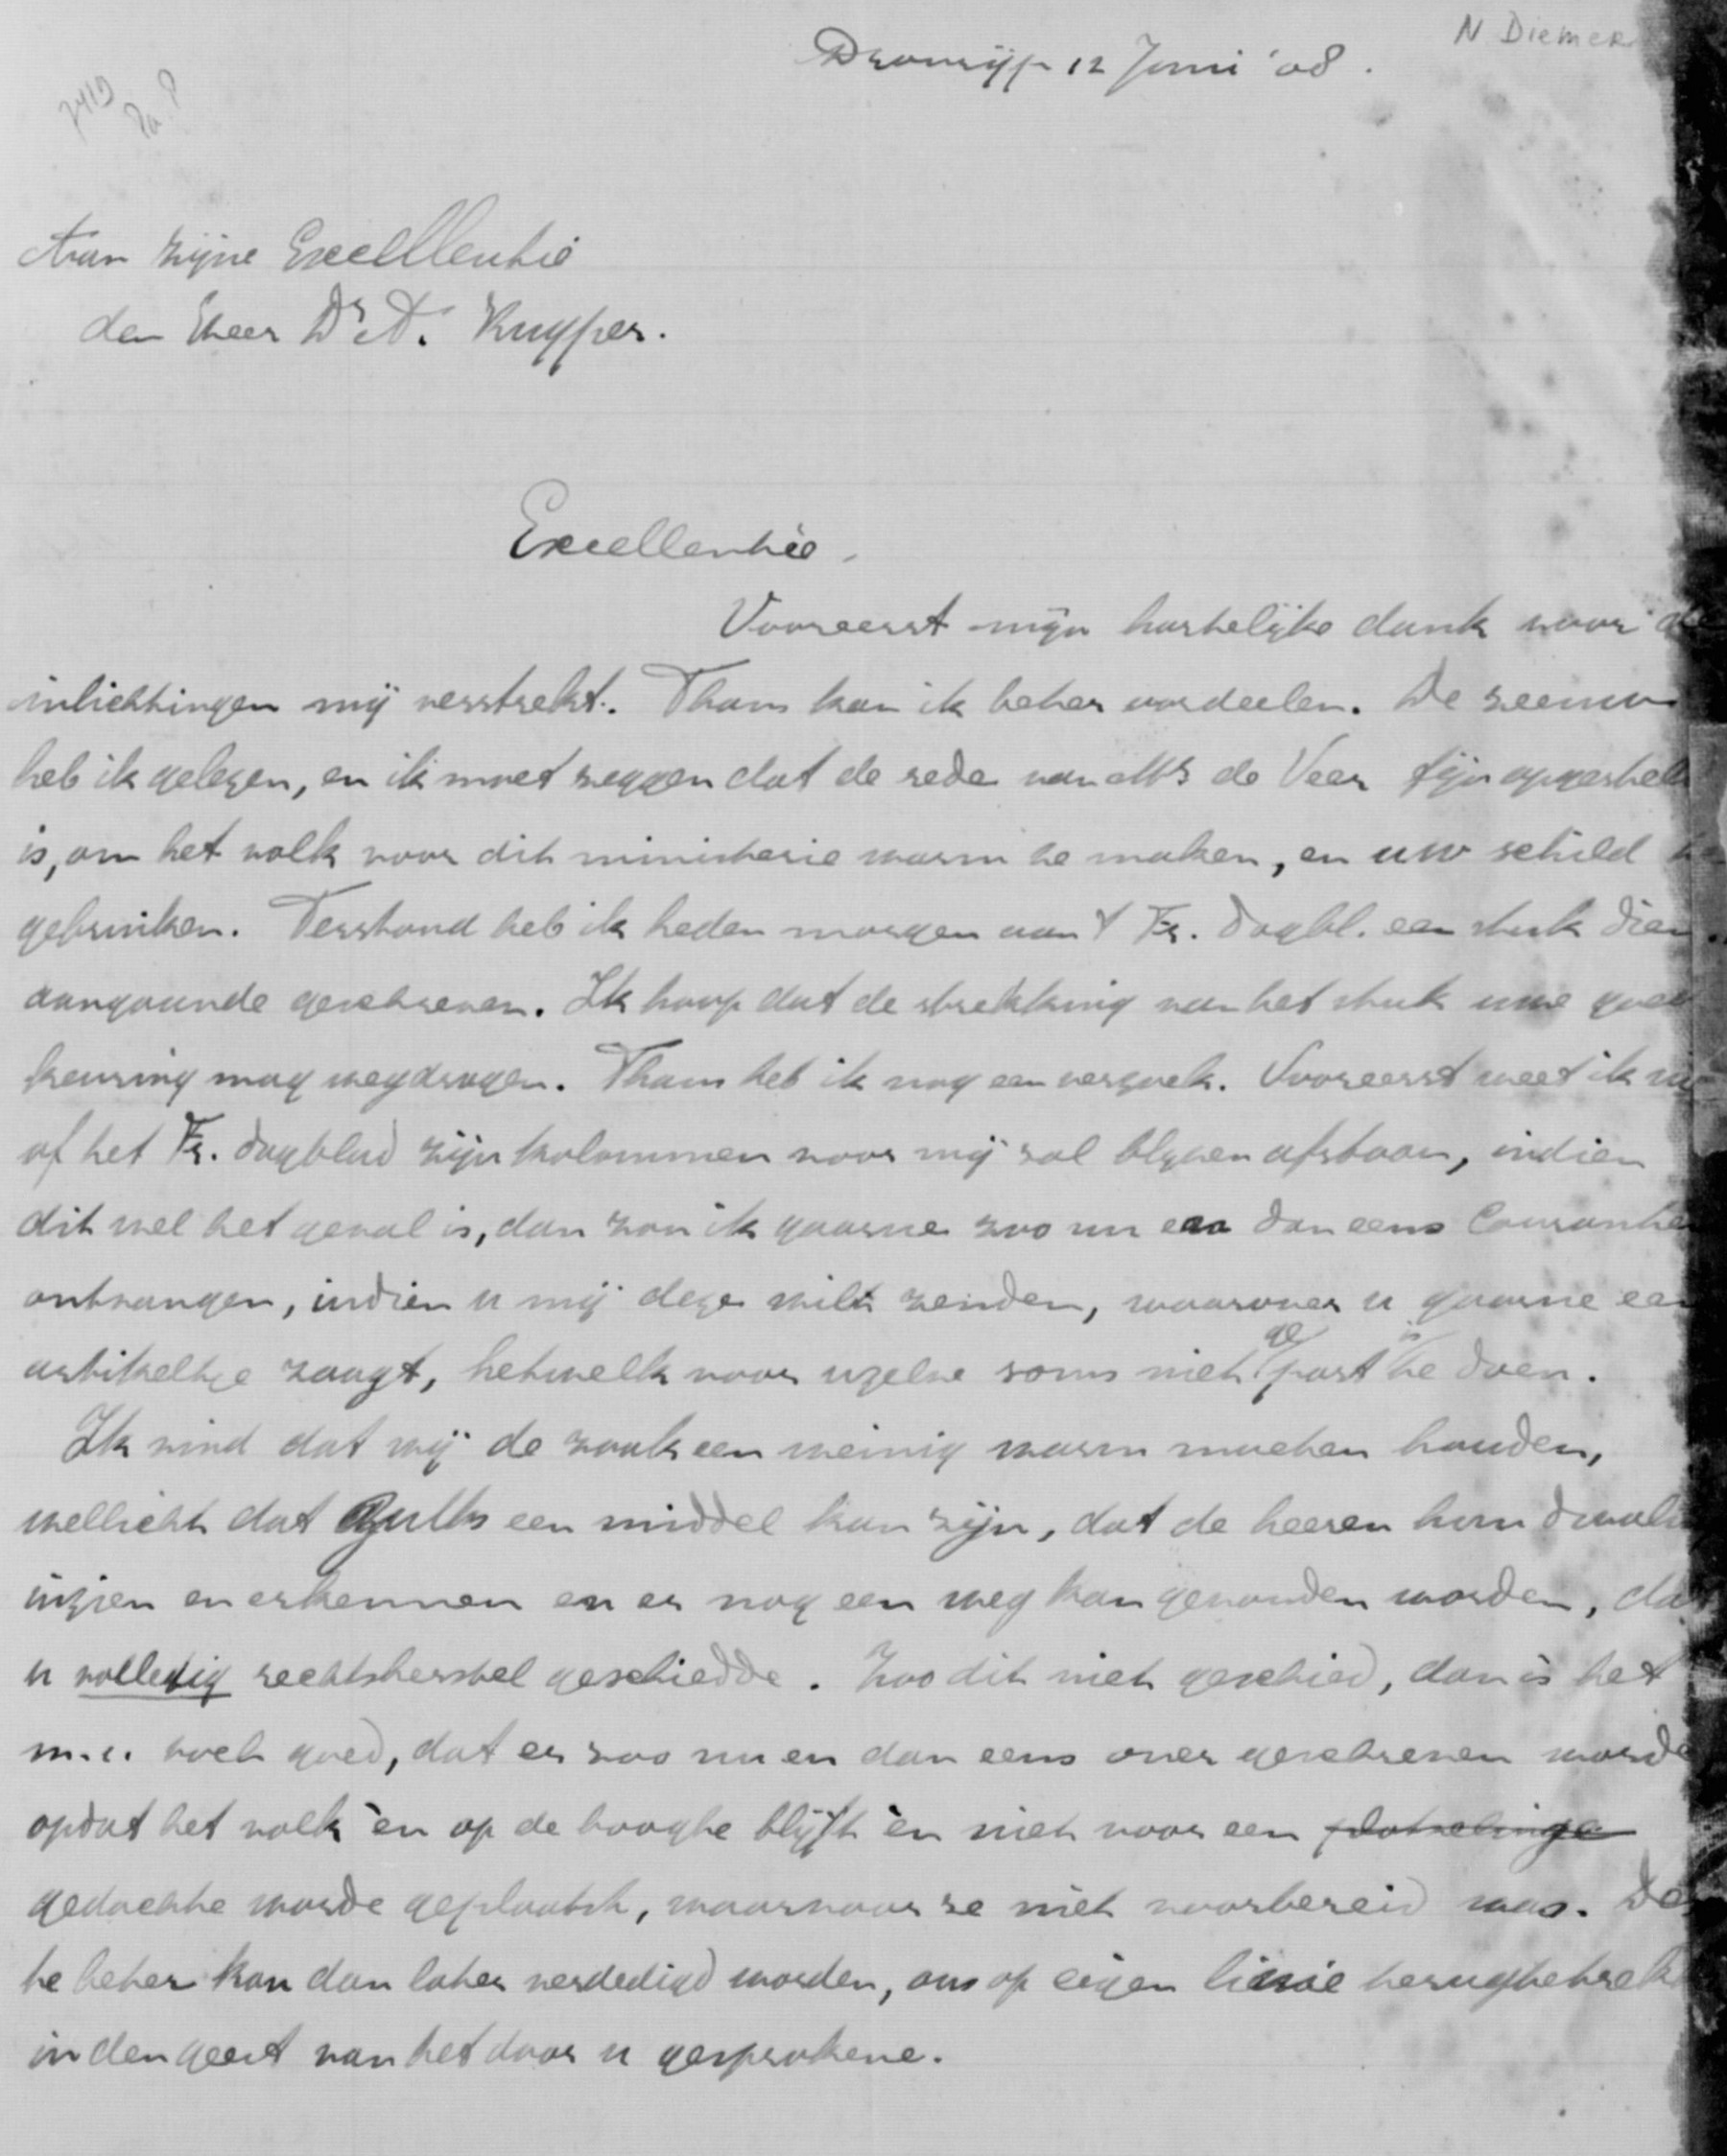 N Diemer
Dronrijp 12 Juni '08.
7419
Aan zijne Excelllentie
den Heer Dr A. Kuyper.
Excellentie.
Vooreerst mijn hartelijke dank voor de
inlichtingen mij verstrekt. Thans kan ik beter oordeelen. De Zeeuw
heb ik gelezen, en ik moet zeggen dat de rede van Mr de Veer fijn opgesteld
is, om het volk voor dit ministerie warm te maken, en uw schild te
gebruiken. Terstond heb ik heden morgen aan 't Fr. Dagbl. een stuk dien
aangaande geschreven. Ik hoop dat de strekking van het stuk uwe goed
keuring mag wegdragen. Thans heb ik nog een verzoek. Vooreerst weet ik niet
of het Fr. dagblad zijn kolommen voor mij zal blyven afstaan, indien
dit wel het geval is, dan zou ik gaarne zoo nu en dan eens Couranten
ontvangen, indien u mij deze wilt zenden, waarover u gaarne een
artikeltje zaagt, hetwelk voor uzelve soms niet gepast is te doen.
Ik vind dat wij de zaak een weinig warm moeten houden,
wellicht dat zulks een middel kan zijn, dat de heeren hun dwaling
inzien en erkennen en er nog een weg kan gevonden worden, dat
u volledig rechtsherstel geschiedde. Zoo dit niet geschied, dan is het
m.i. toch goed, dat er zoo nu en dan eens over geschreven worde
opdat het volk èn op de hoogte blijft èn niet voor een plotselinge
gedachte worde geplaatst, waarvoor ze niet voorbereid was. Des
te beter kan dan later verdedigd worden, ons op eigen linie terugtetrekken
in den geest van het door u gesprokene.